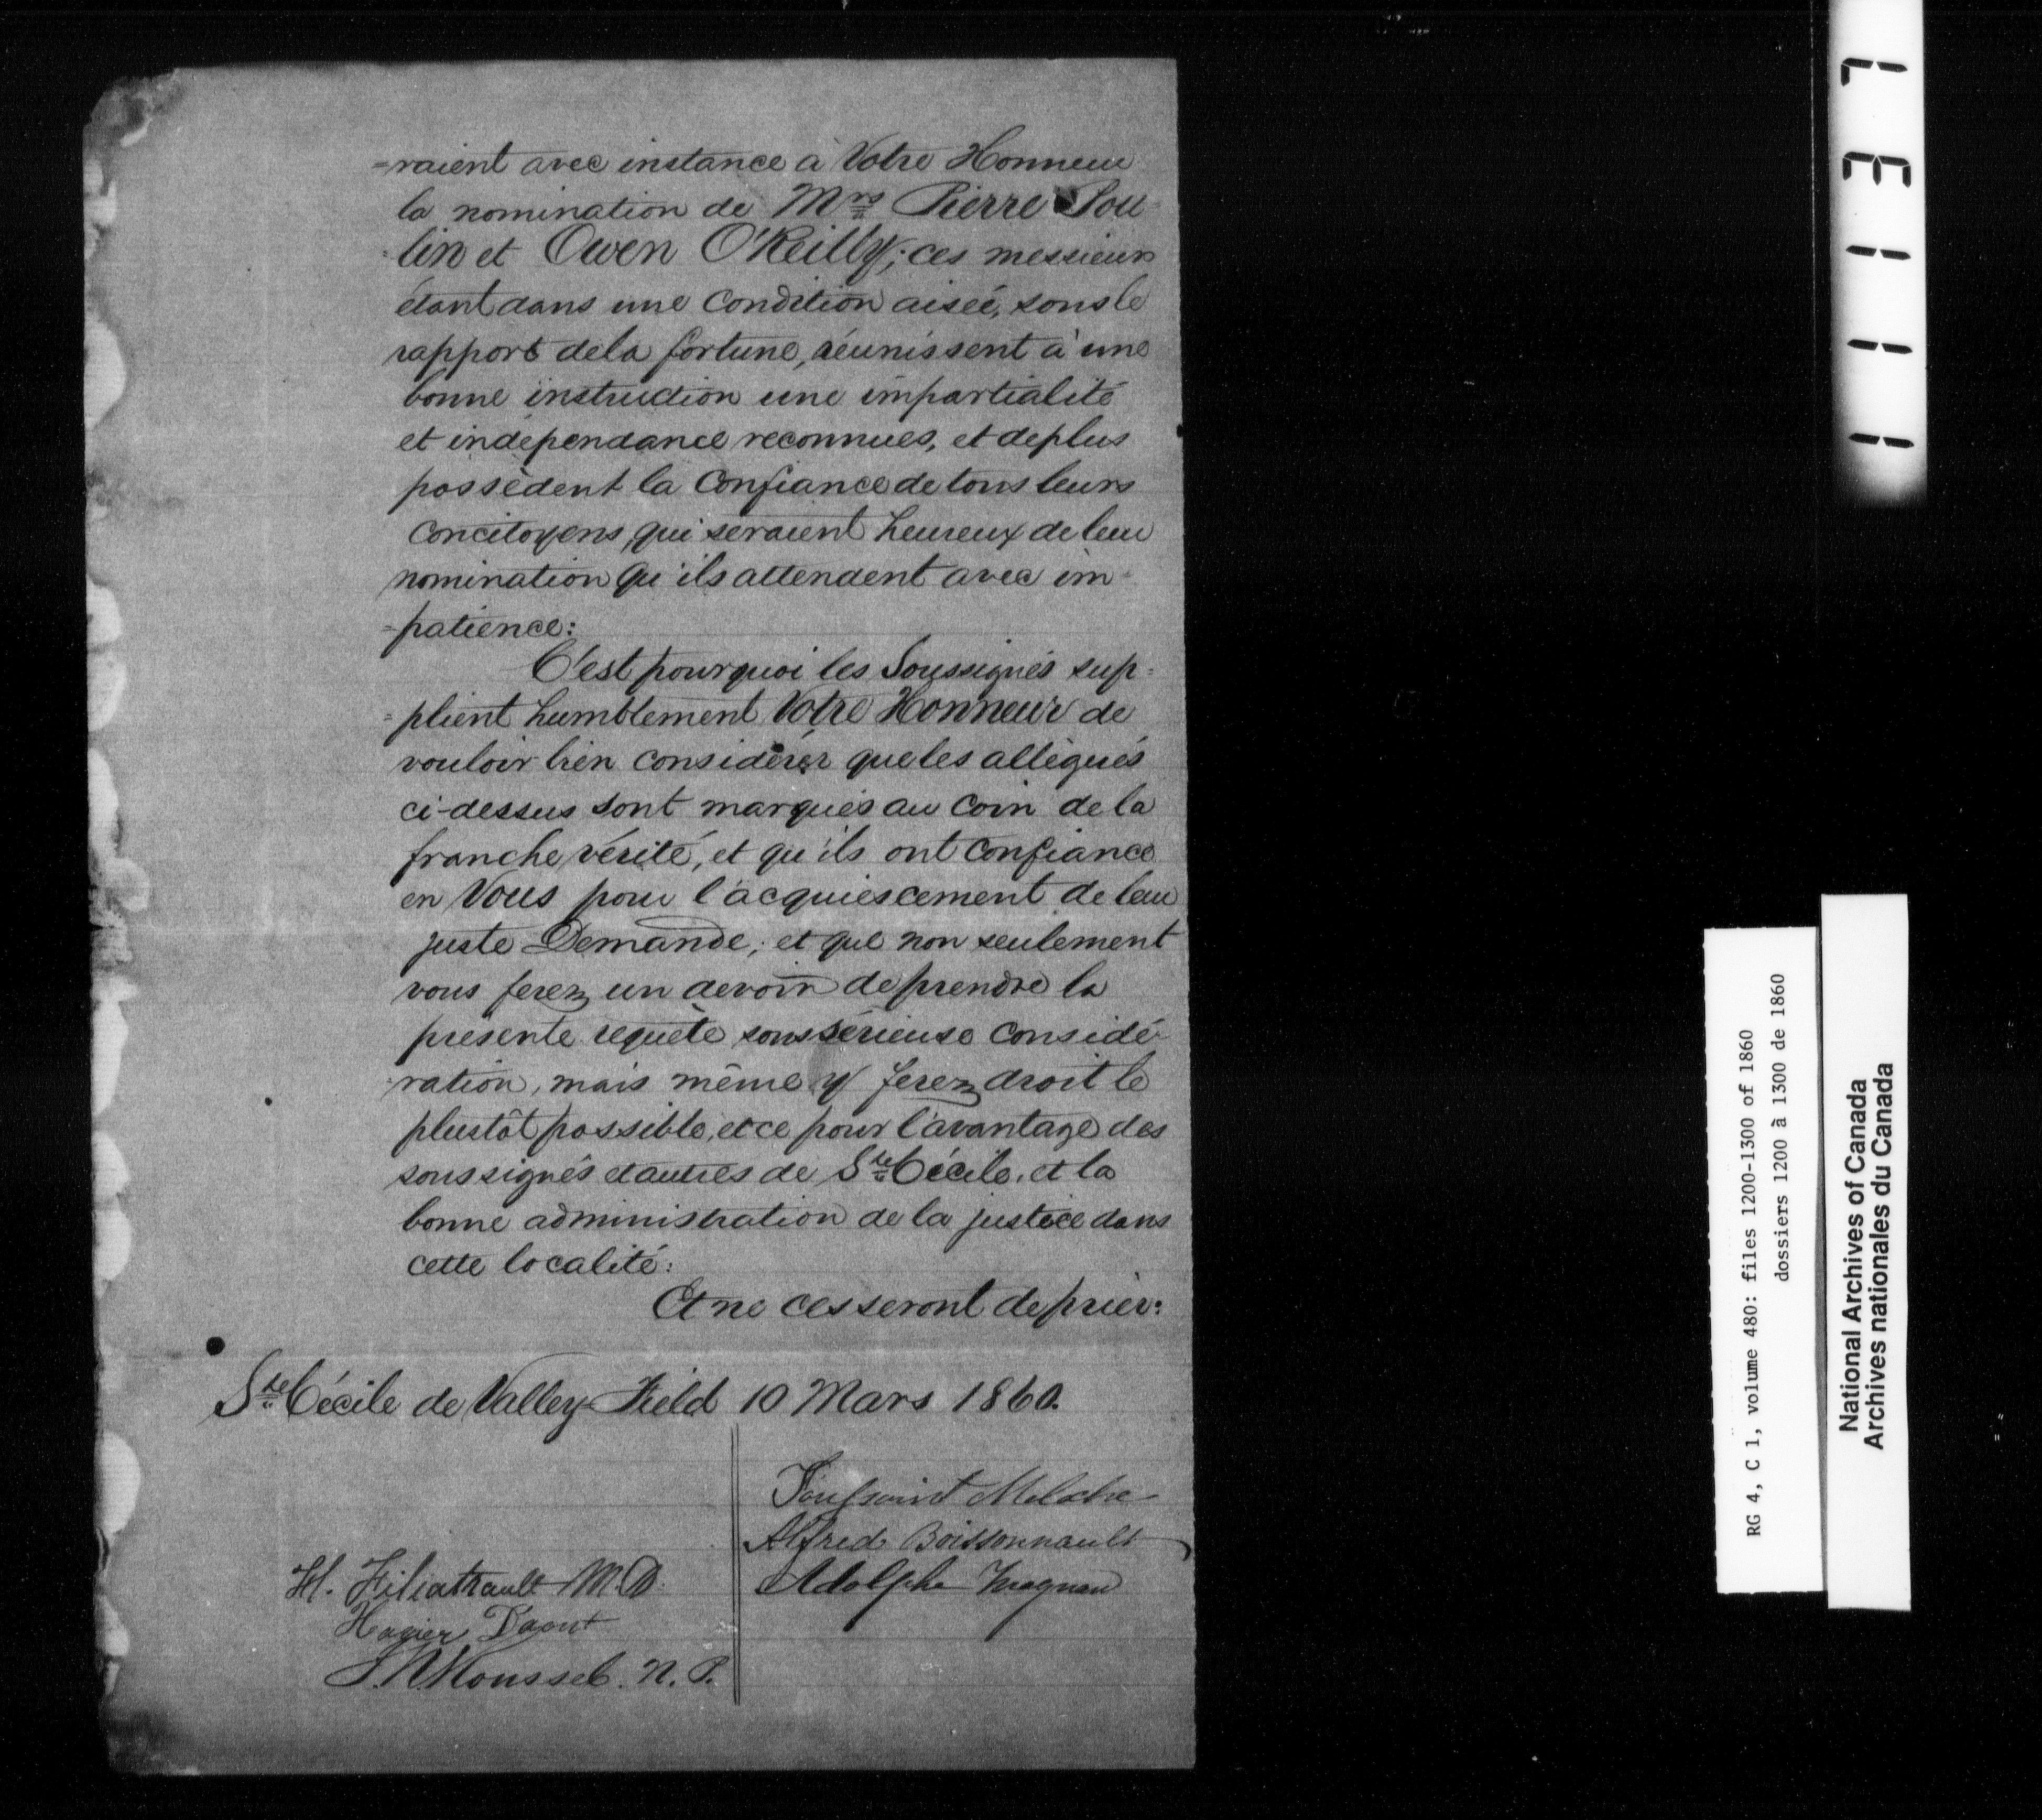 =raient avec instance à Votre Honneur
la nomination de Mrs Pierre Pou=
=lin et Owen O'Reilly; ces messieurs
étant dans une Condition aisée, sous le
rapport de la fortune, réunissent à une
bonne instruction une impartialité
et indépendance reconnues, et de plus
possèdent la Confiance de tous leurs
Concitoyens, qui seraient heureux de leur
nomination qu'ils attendent avec im=
=patience:
C'est pourquoi les Soussignés sup=
=plient humblement Votre Honneur de
vouloir bien considérer que les allégués
ci-dessus sont marqués au Coin de la
franche vérité, et qu'ils ont Confiance
en Vous pour l'acquiescement de leur
juste Demande; et que non seulement
vous ferez un devoir de prendre la
présente requête sous sérieuse Considé-
ration, mais même y ferez droit le
plustôt possible, et ce pour l'avantage des
soussignés et autres de Ste Cécile, et la
bonne administration de la justice dans
cette localité:
Et ne cesseront de prier:
Ste Cécile de Valley-Field 10 Mars 1860.
Toussaint
Alfred Boissonnault
Adolphe Magnan
H. Filiatrault M.D.
Daout
N. P.
11137
RG 4, C 1, volume 480: files 1200-1300 of 1860
dossiers 1200 à 1300 de 1860
National Archives of Canada
Archives nationales du Canada